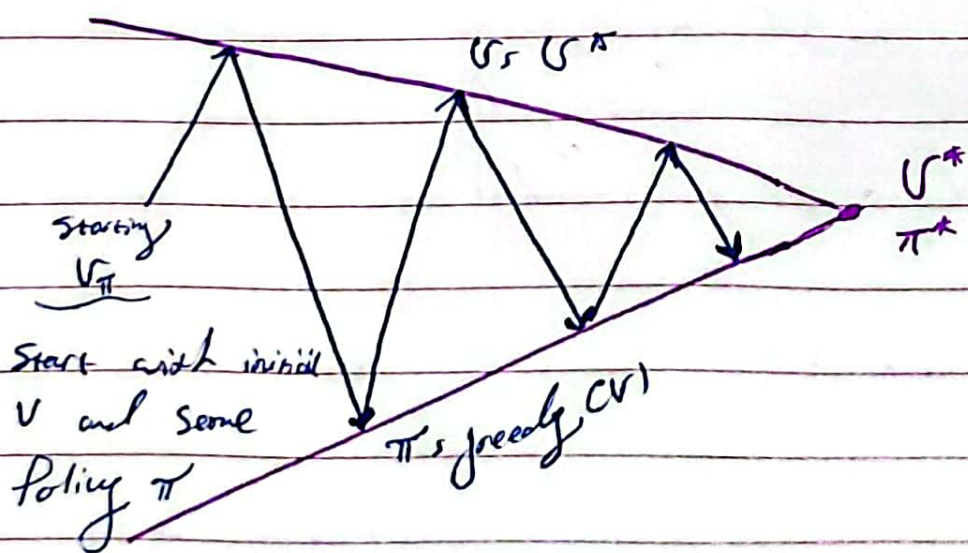 V = V^π
V*
π*
Starting
V_π
Start with initial
V and some
Policy π
π = greedy (V)